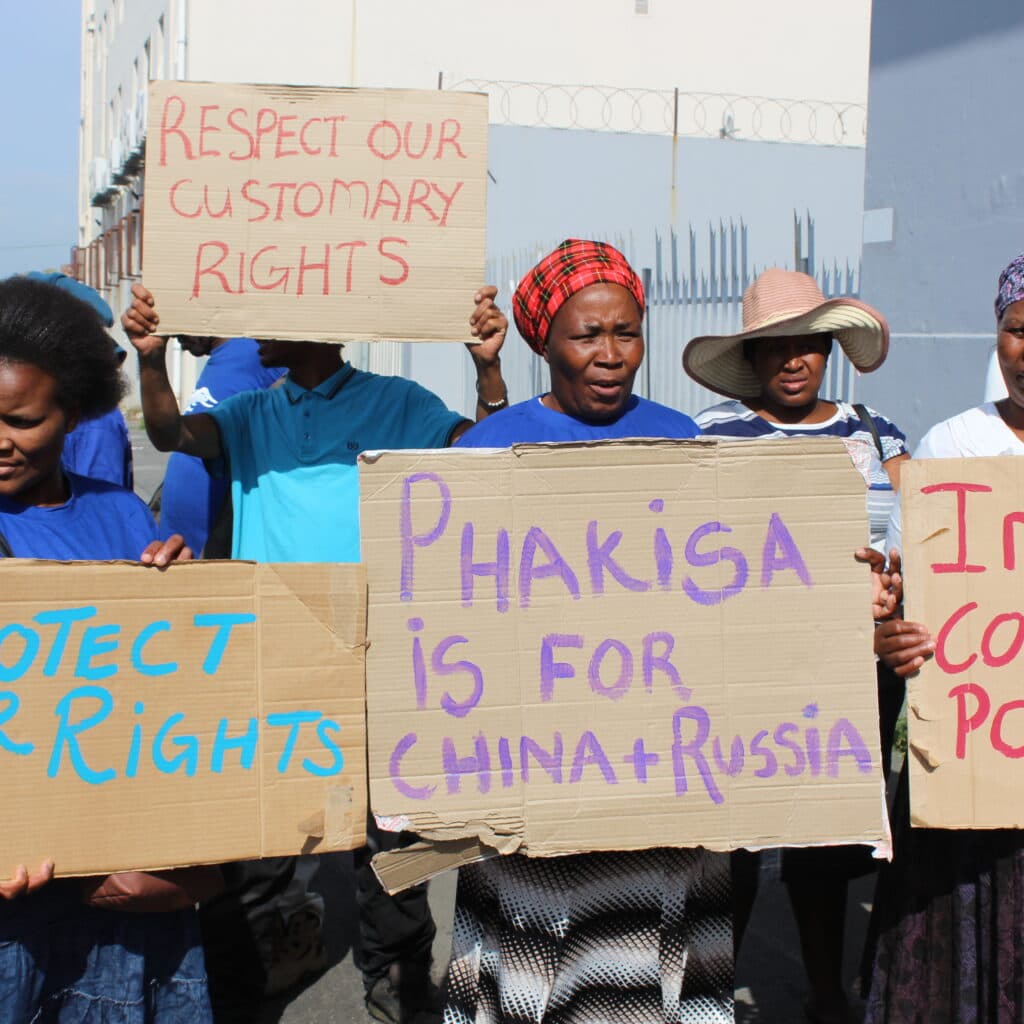 RESPECT OUR
CUSTOMARY
RIGHTS
OTECT
RIGHTS
PHAKISA
iS FOR
CHINA+RUSSiA
CO
PO